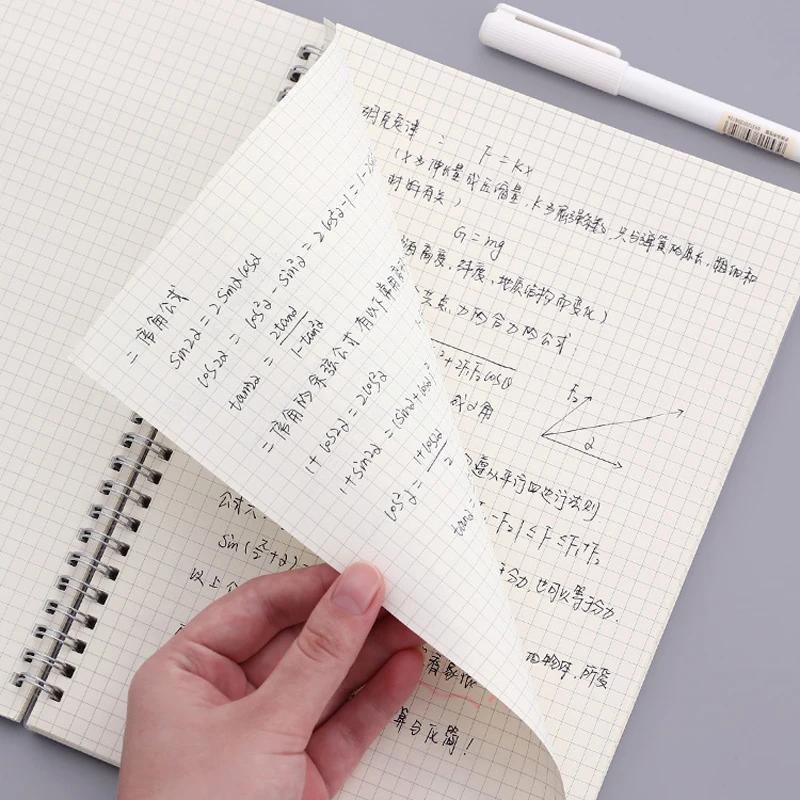 二倍角公式
sin2α = 2sinαcosα
cos2α = cos²α - sin²α = 2cos²α-1 = 1-2
tan2α = 2tanα / 1-tan²α
二倍角的余弦公式有以下
1+cos2α = 2cos²α
1+sin2α = (sinα+cosα)²
cos²α = 1+cos2α / 2
tanα =
胡克定律: F=kx
(x为伸长量或压缩量, k为倔强系数, 只与弹簧的原长, 粗细和
材料有关)
G=mg
高度, 纬度, 地质结构而变化)
共点力的合力的公式
²+2F₁F₂cosθ
成α角
F₂
α
遵从平行四边形法则
-F₂|≤F≤F₁+F₂
于分力, 也可以等于分力.
公式六:
sin(π/2+α)=
以上
物体, 所受
算与化简!